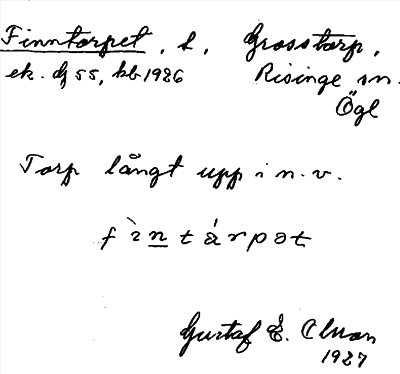 Finntorpet, l, Grosstorp,
ek. bl 55, hb 1926 Risinge sn.
Ögl
Torp långt upp i n.v.
fìntárpət
Gustaf E.
1927